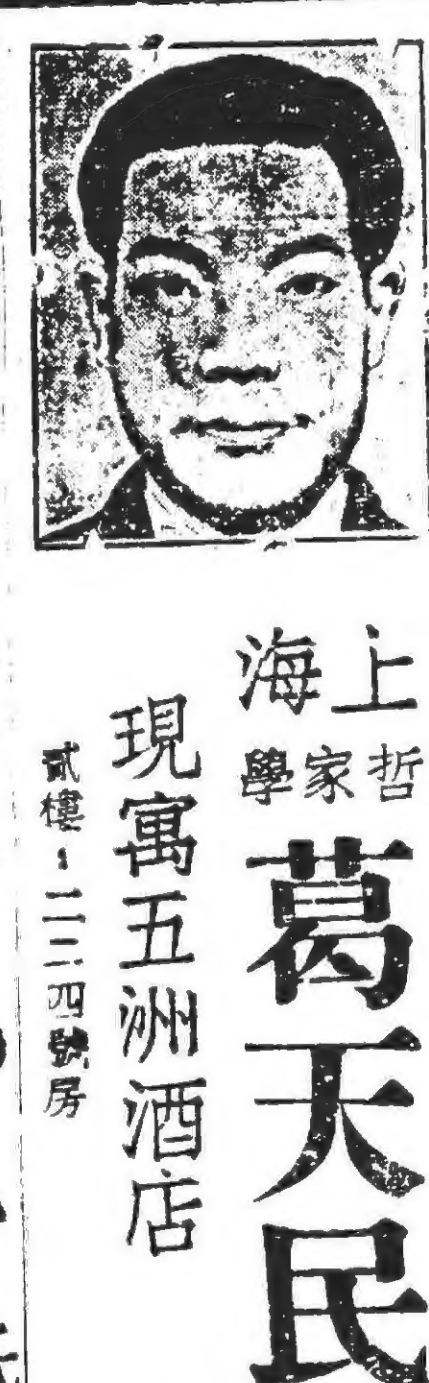 上海
哲學家
葛天民
現寓五洲酒店
貳樓：二二四號房